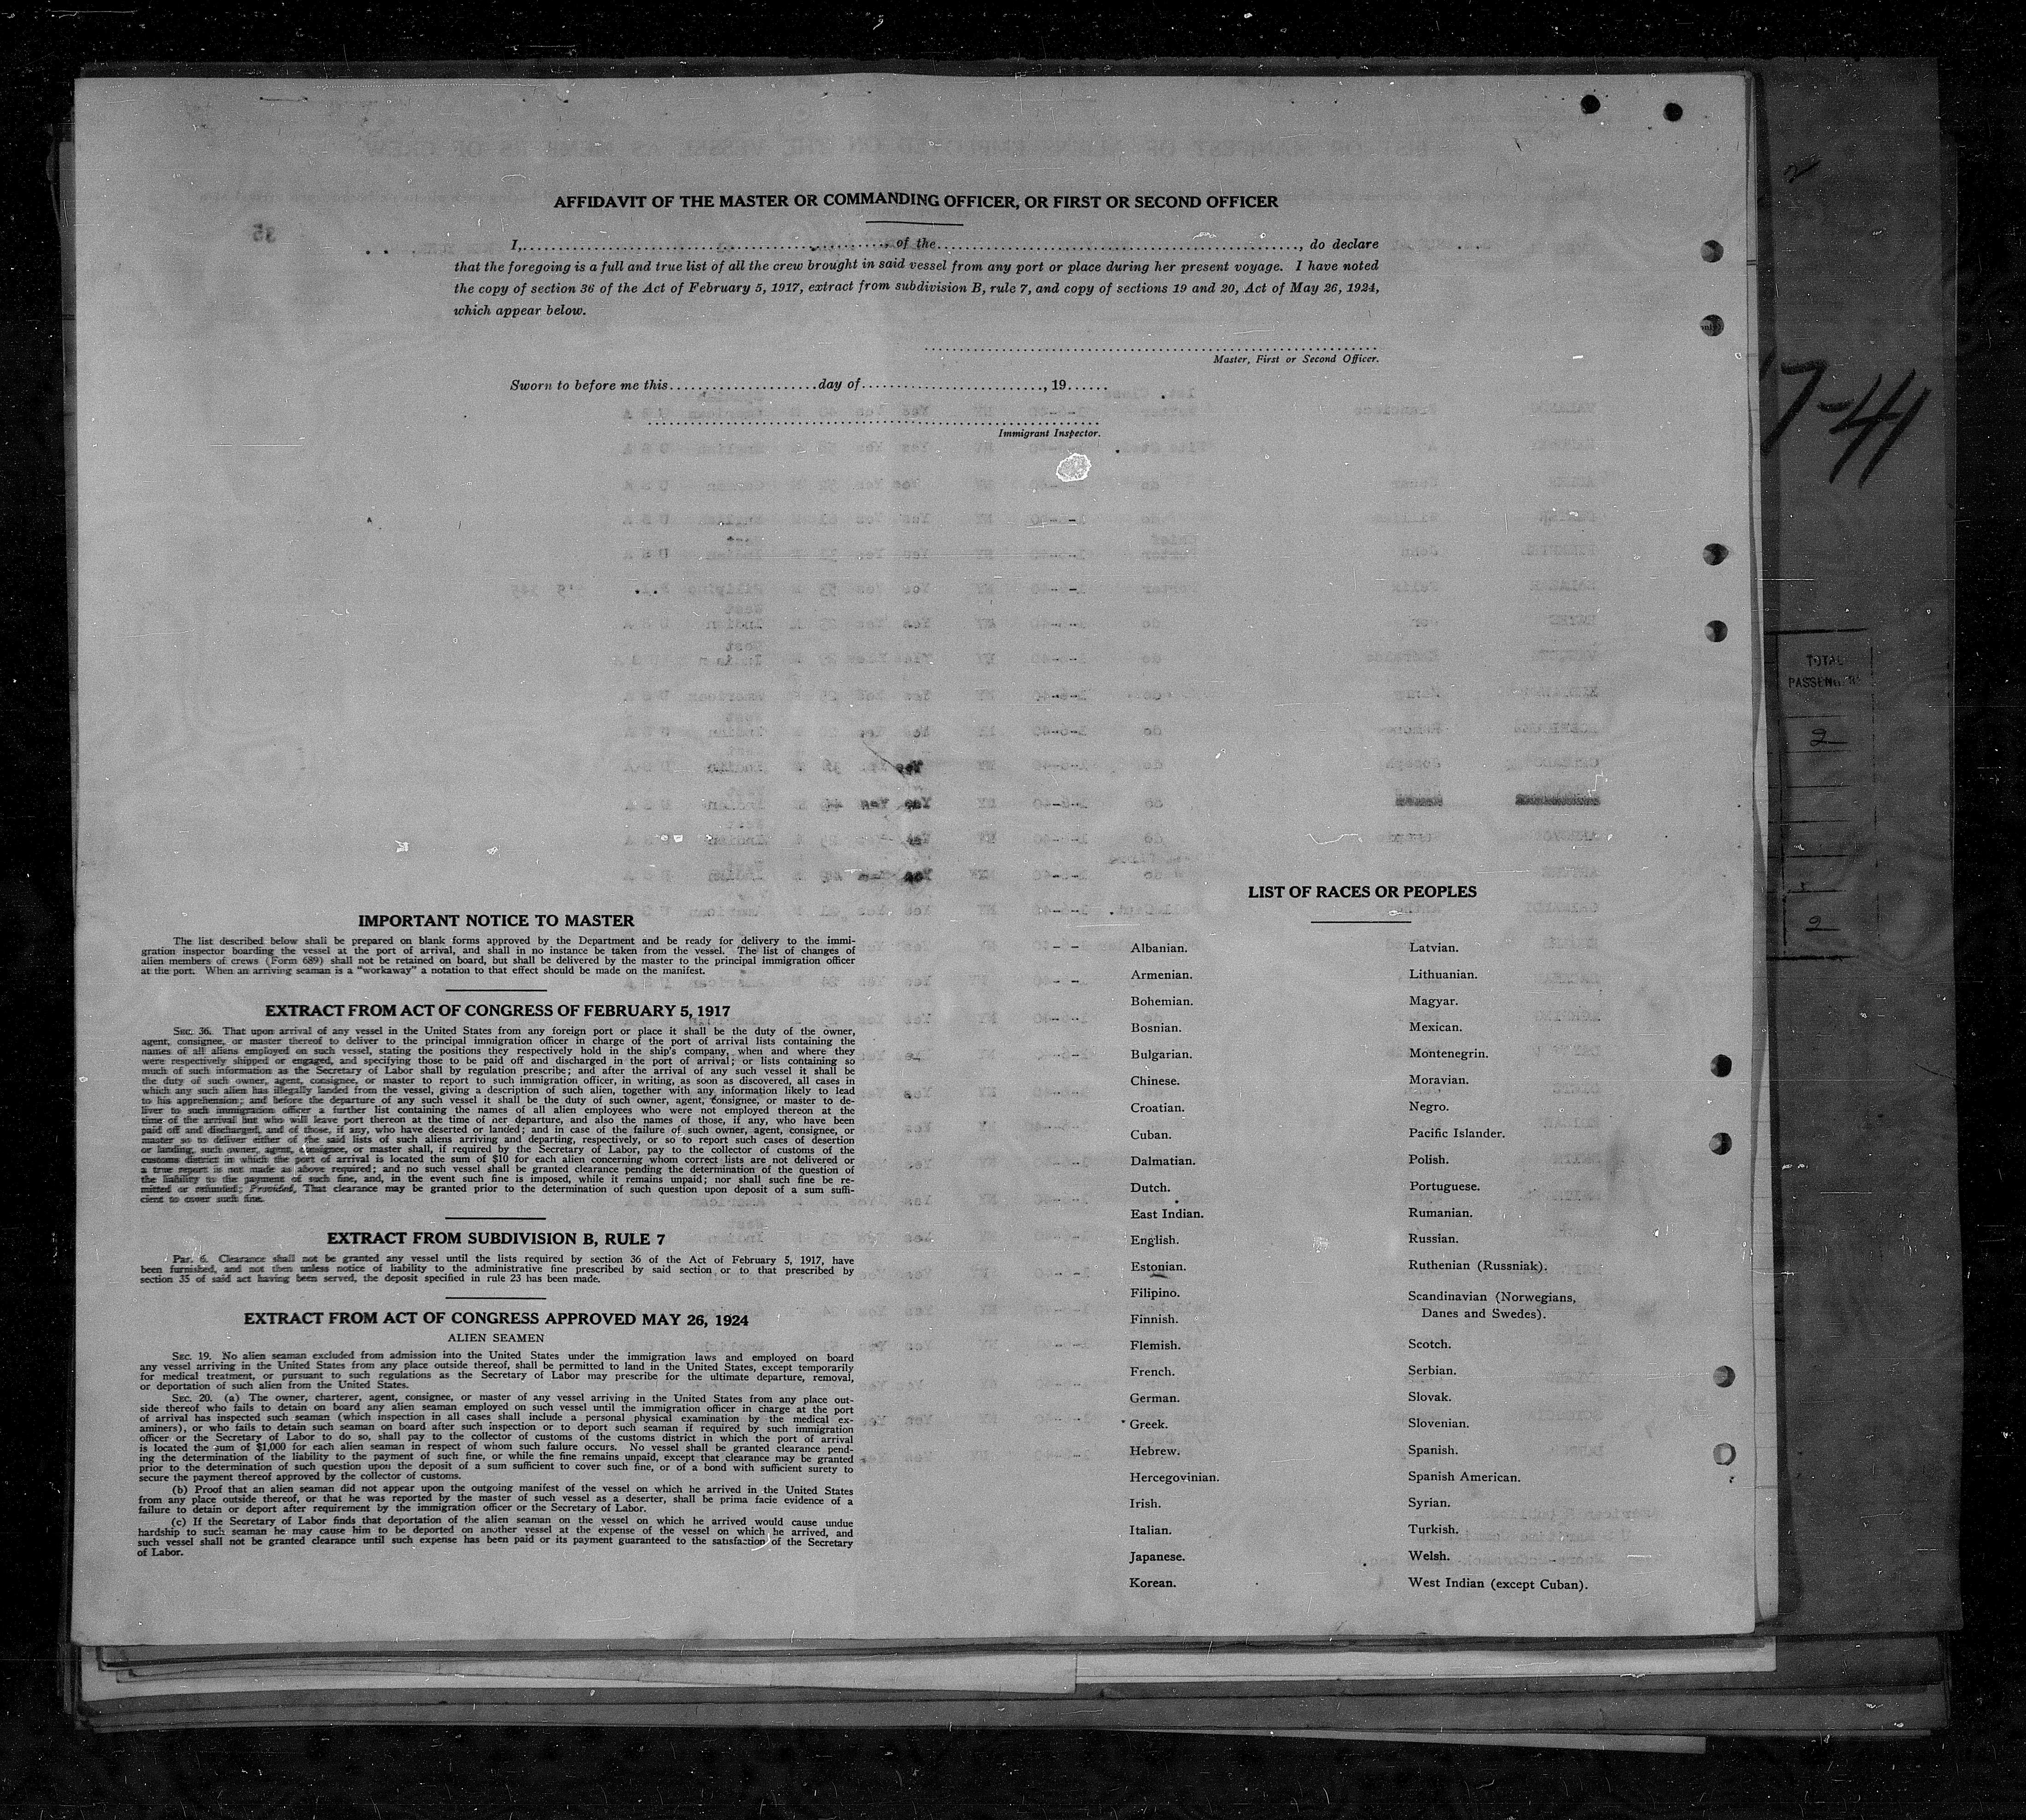 AFFIDAVIT OF THE MASTER OR COMMANDING OFFICER, OR FIRST OR SECOND OFFICER
I, of the , do declare
that the foregoing is a full and true list of all the crew brought in said vessel from any port or place during her present voyage. I have noted
the copy of section 36 of the Act of February 5, 1917, extract from subdivision B, rule 7, and copy of sections 19 and 20, Act of May 26, 1924,
which appear below.
Master, First or Second Officer.
Sworn to before me this day of , 19
Immigrant Inspector.
35
7-41
TOTAL
PASSENG
2
2
IMPORTANT NOTICE TO MASTER
The list described below shall be prepared on blank forms approved by the Department and be ready for delivery to the immi-
gration inspector boarding the vessel at the port of arrival, and shall in no instance be taken from the vessel. The list of changes of
alien members of crews (Form 689) shall not be retained on board, but shall be delivered by the master to the principal immigration officer
at the port. When an arriving seaman is a "workaway" a notation to that effect should be made on the manifest.
EXTRACT FROM ACT OF CONGRESS OF FEBRUARY 5, 1917
SEC. 36. That upon arrival of any vessel in the United States from any foreign port or place it shall be the duty of the owner,
agent, consignee, or master thereof to deliver to the principal immigration officer in charge of the port of arrival lists containing the
names of all aliens employed on such vessel, stating the positions they respectively hold in the ship's company, when and where they
were respectively shipped or engaged, and specifying those to be paid off and discharged in the port of arrival; or lists containing so
much of such information as the Secretary of Labor shall by regulation prescribe; and after the arrival of any such vessel it shall be
the duty of such owner, agent, consignee, or master to report to such immigration officer, in writing, as soon as discovered, all cases in
which any such alien has illegally landed from the vessel, giving a description of such alien, together with any information likely to lead
to his apprehension; and before the departure of any such vessel it shall be the duty of such owner, agent, consignee, or master to de-
liver to such immigration officer a further list containing the names of all alien employees who were not employed thereon at the
time of the arrival but who will leave port thereon at the time of her departure, and also the names of those, if any, who have been
paid off and discharged, and of those, if any, who have deserted or landed; and in case of the failure of such owner, agent, consignee, or
master so to deliver either of the said lists of such aliens arriving and departing, respectively, or so to report such cases of desertion
or landing, such owner, agent, consignee, or master shall, if required by the Secretary of Labor, pay to the collector of customs of the
customs district in which the port of arrival is located the sum of $10 for each alien concerning whom correct lists are not delivered or
a true report is not made as above required; and no such vessel shall be granted clearance pending the determination of the question of
the liability to the payment of such fine, and, in the event such fine is imposed, while it remains unpaid; nor shall such fine be re-
mitted or refunded; Provided, That clearance may be granted prior to the determination of such question upon deposit of a sum suffi-
cient to cover such fine.
EXTRACT FROM SUBDIVISION B, RULE 7
Par. 6. Clearance shall not be granted any vessel until the lists required by section 36 of the Act of February 5, 1917, have
been furnished, and not then unless notice of liability to the administrative fine prescribed by said section or to that prescribed by
section 35 of said act having been served, the deposit specified in rule 23 has been made.
EXTRACT FROM ACT OF CONGRESS APPROVED MAY 26, 1924
ALIEN SEAMEN
SEC. 19. No alien seaman excluded from admission into the United States under the immigration laws and employed on board
any vessel arriving in the United States from any place outside thereof, shall be permitted to land in the United States, except temporarily
for medical treatment, or pursuant to such regulations as the Secretary of Labor may prescribe for the ultimate departure, removal,
or deportation of such alien from the United States.
SEC. 20. (a) The owner, charterer, agent, consignee, or master of any vessel arriving in the United States from any place out-
side thereof who fails to detain on board any alien seaman employed on such vessel until the immigration officer in charge at the port
of arrival has inspected such seaman (which inspection in all cases shall include a personal physical examination by the medical ex-
aminers), or who fails to detain such seaman on board after such inspection or to deport such seaman if required by such immigration
officer or the Secretary of Labor to do so, shall pay to the collector of customs of the customs district in which the port of arrival
is located the sum of $1,000 for each alien seaman in respect of whom such failure occurs. No vessel shall be granted clearance pend-
ing the determination of the liability to the payment of such fine, or while the fine remains unpaid, except that clearance may be granted
prior to the determination of such question upon the deposit of a sum sufficient to cover such fine, or of a bond with sufficient surety to
secure the payment thereof approved by the collector of customs.
(b) Proof that an alien seaman did not appear upon the outgoing manifest of the vessel on which he arrived in the United States
from any place outside thereof, or that he was reported by the master of such vessel as a deserter, shall be prima facie evidence of a
failure to detain or deport after requirement by the immigration officer or the Secretary of Labor.
(c) If the Secretary of Labor finds that deportation of the alien seaman on the vessel on which he arrived would cause undue
hardship to such seaman he may cause him to be deported on another vessel at the expense of the vessel on which he arrived, and
such vessel shall not be granted clearance until such expense has been paid or its payment guaranteed to the satisfaction of the Secretary
of Labor.
LIST OF RACES OR PEOPLES
Albanian.
Armenian.
Bohemian.
Bosnian.
Bulgarian.
Chinese.
Croatian.
Cuban.
Dalmatian.
Dutch.
East Indian.
English.
Estonian.
Filipino.
Finnish.
Flemish.
French.
German.
Greek.
Hebrew.
Hercegovinian.
Irish.
Italian.
Japanese.
Korean.
Latvian.
Lithuanian.
Magyar.
Mexican.
Montenegrin.
Moravian.
Negro.
Pacific Islander.
Polish.
Portuguese.
Rumanian.
Russian.
Ruthenian (Russniak).
Scandinavian (Norwegians,
Danes and Swedes).
Scotch.
Serbian.
Slovak.
Slovenian.
Spanish.
Spanish American.
Syrian.
Turkish.
Welsh.
West Indian (except Cuban).